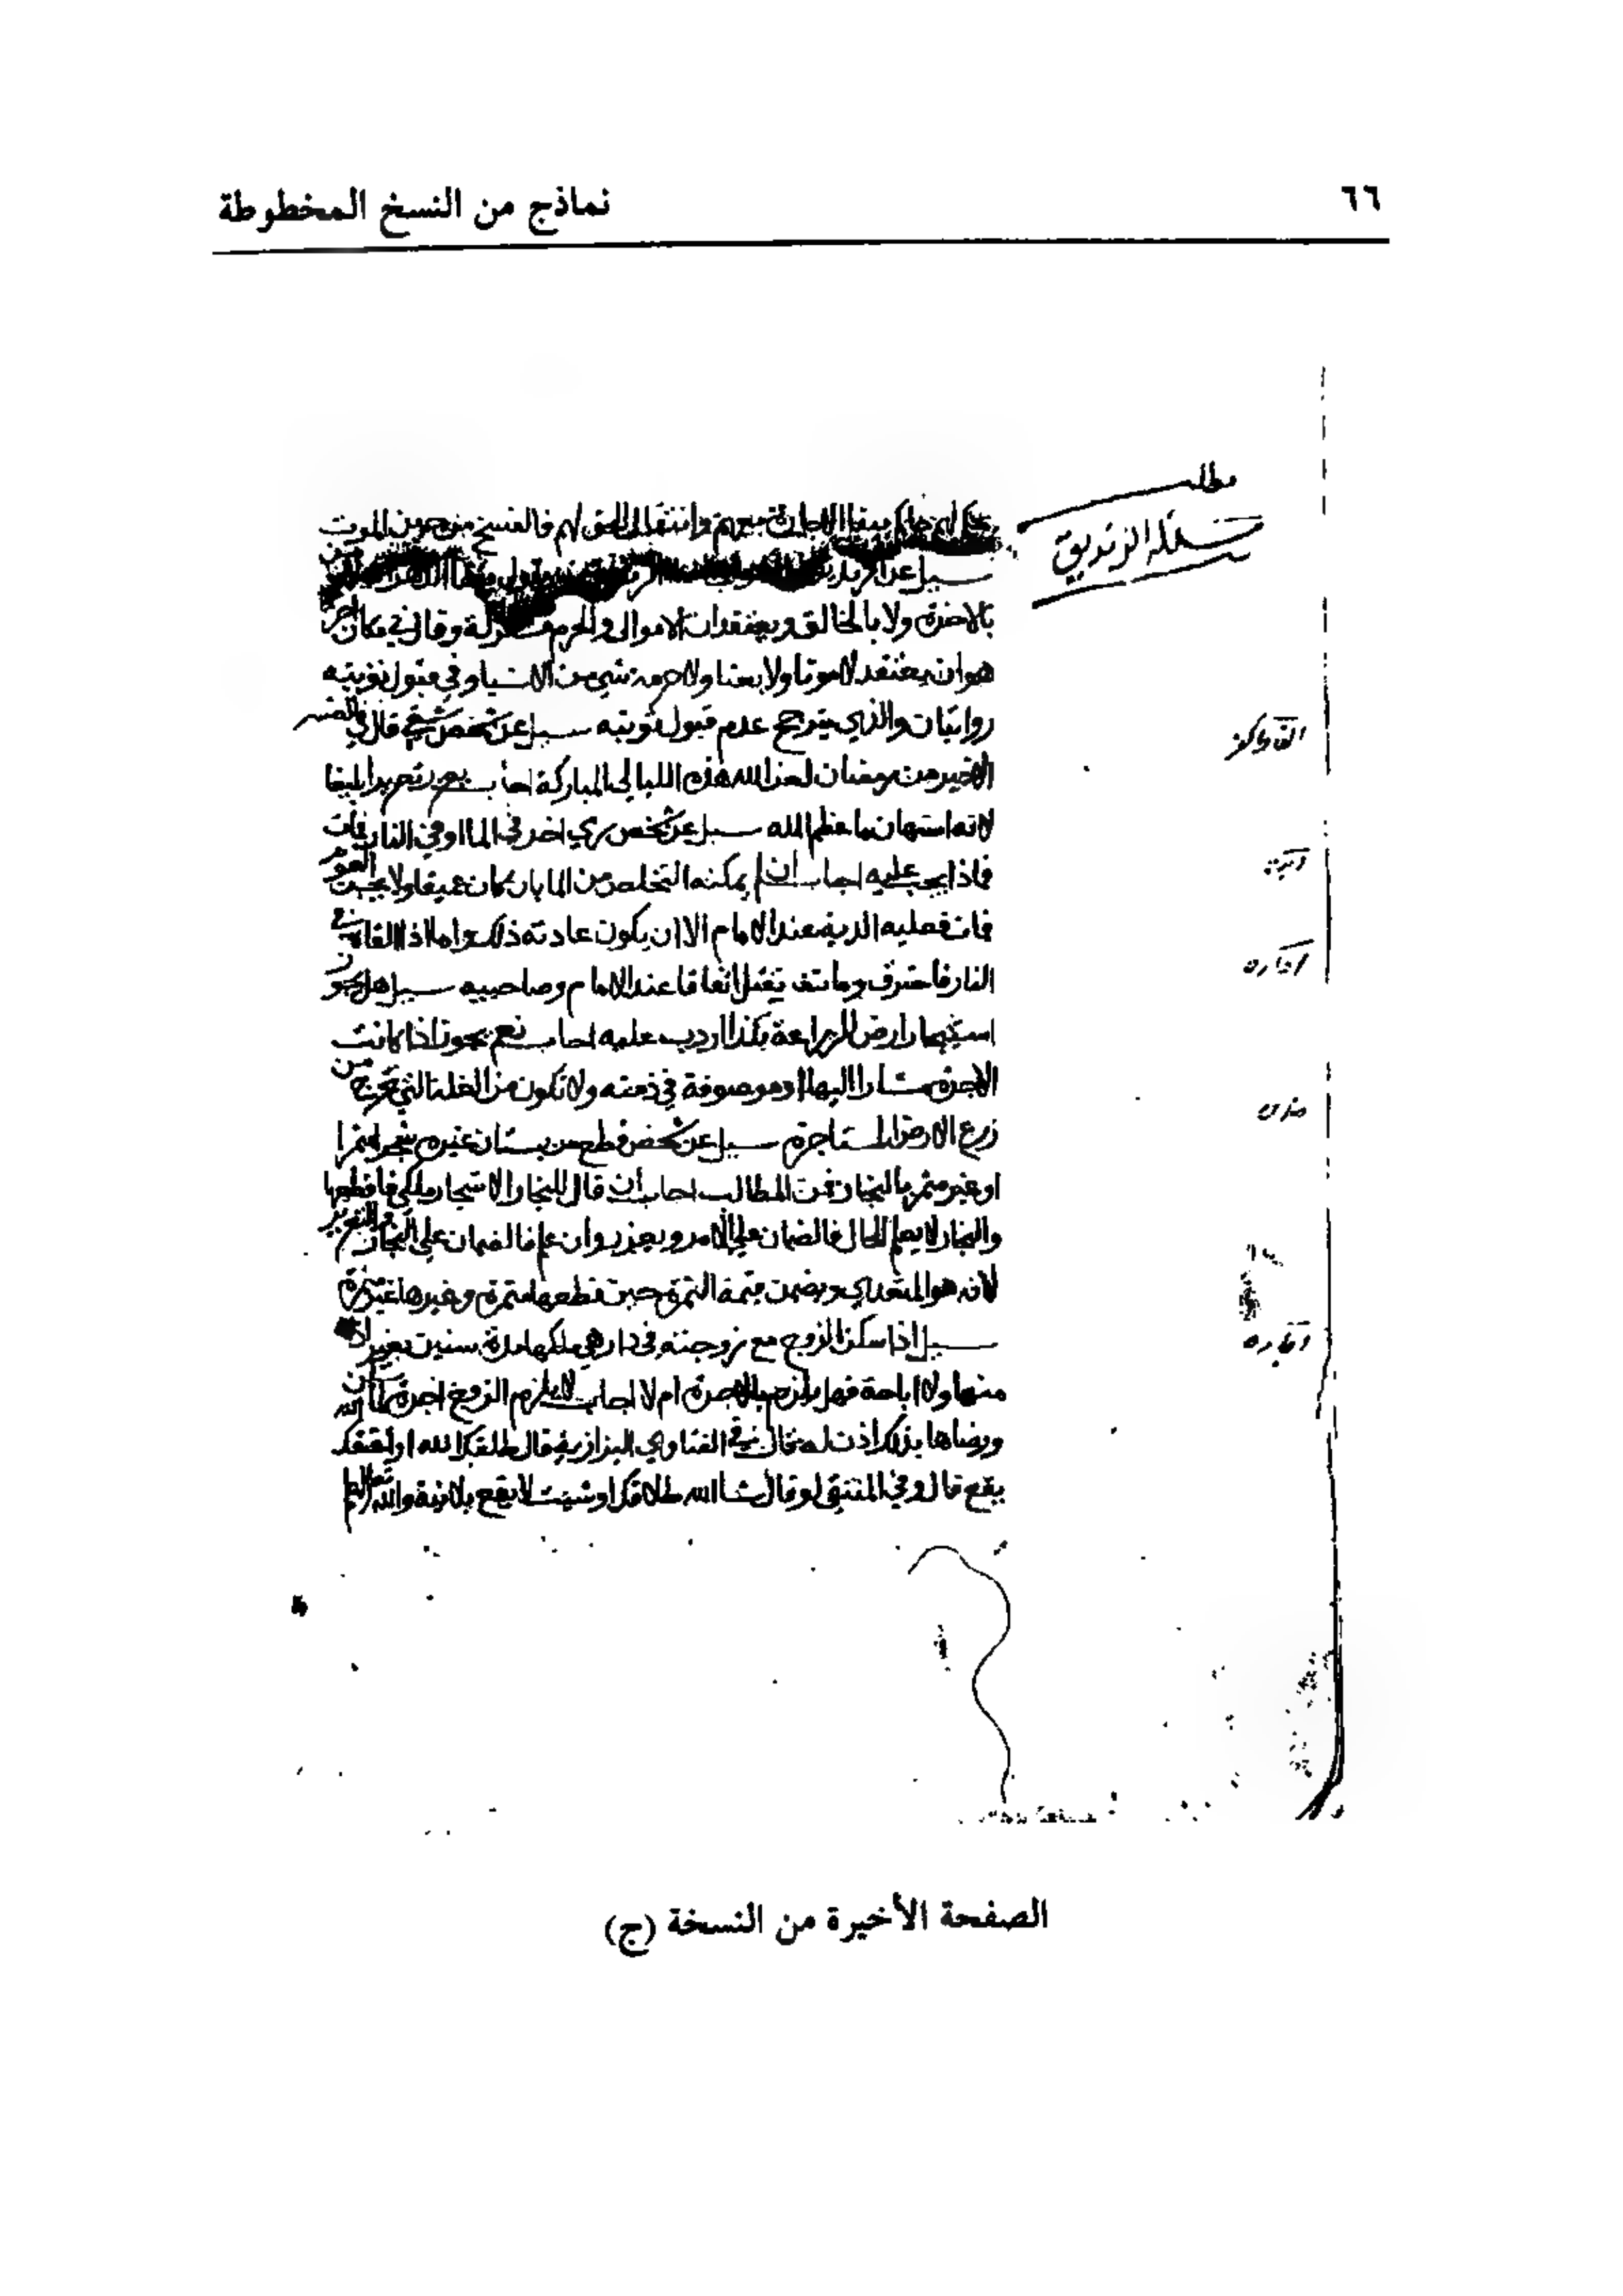 ٦٦ نماذج من النسخ المخطوطة
مطلب
مسئلة الزنديق
ببقاء الاجارة وانتقال الحق لهم فالفسخ من حين الموت
سيل عن
بالاخرة ولا بالخالق ويعتقد ان الاموال والحرم مشتركة وقال في مكان اخر
هو ان يعتقد لا موتا ولا بعثا ولا حرمة شي من الاشيا وفي قبول توبته
روايتان والذي يترجح عدم قبول توبته سيل عن شخص قال في العشر
الاخير من رمضان لعن الله هذه الليالي المباركة اجاب يعزر تعزيرا بليغا
لانه استهان ما عظم الله سيل عن شخص رمي اخر في الما او في النار فمات
فماذا يجب عليه اجاب ان لم يمكنه التخلص من الما بان كان عميقا ولا يحسن العوم
فمات فعليه الدية عند الامام الا ان يكون عادته ذلك واما اذا القاه في
النار فاحترق ومات يقتل اتفاقا عند الامام وصاحبيه سيل هل يجوز
استيجار ارض للزراعة بكذا اردب غله اجاب نعم يجوز اذا كانت
الاجرة مشارا اليها او موصوفة في ذمته ولا تكون من الغلة التي تخرج من
زرع الارض المستاجرة سيل عن شخص قطع من بستان غيره شجرا مثمرا
او غير مثمر بالنجار فمن المطالب اجاب ان قال للنجار الاشجار ملكي فاقطعها
والنجار لا يعلم الحال فالضمان علي الامر ويعزر وان علم فالضمان علي النجار والتعزير
لانه هو المتعدي ويضمن قيمة الثمرة حين قطعها مثمرة وغيرها غير مثمرة
سيل اذا سكن الزوج مع زوجته في دار هي ملكها مدة سنين بغير اذن
منها ولا اباحة فهل يلزم بالاجرة ام لا اجاب لا يلزم الزوج اجرة
ورضاها بذلك اذن له قال في الفتاوي البزازية قال طلقك الله او اعتقك الله
يقع قال وفي المنتقي لو قال شا الله طلاقك او شيت لا يقع بلا نية والله تعالي اعلم
اجاره
اجاره
الصفحة الأخيرة من النسخة (ج)